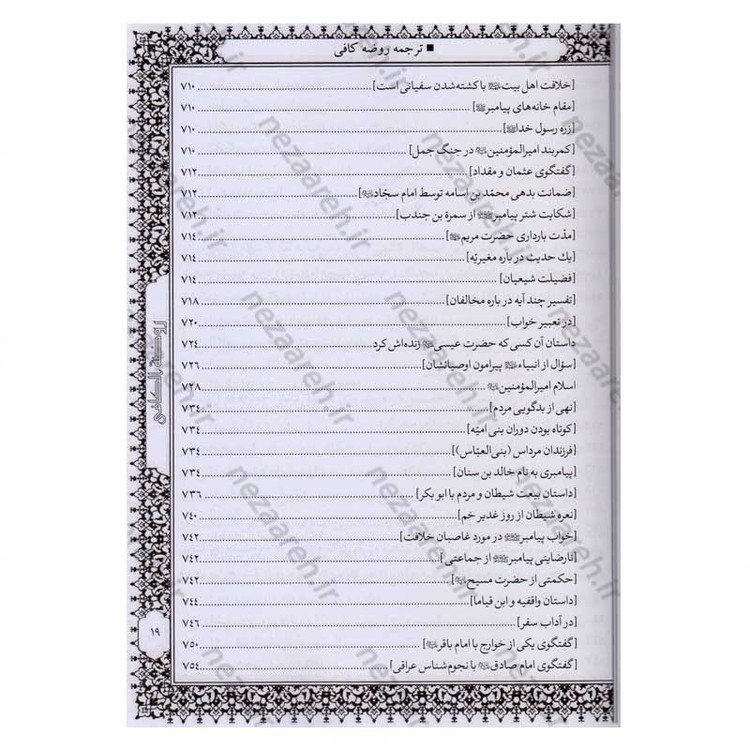 ■ ترجمه روضه کافی
[خلافت اهل بیت ﷺ با کشته‌شدن سفیانی است] ۷۱۰
[مقام خانه‌های پیامبر ﷺ] ۷۱۰
[زره رسول خدا ﷺ] ۷۱۰
[کمربند امیرالمؤمنین در جنگ جمل] ۷۱۰
[گفتگوی عثمان و مقداد] ۷۱۲
[ضمانت بدهی محمّد بن اسامه توسط امام سجّاد] ۷۱۲
[شکایت شتر پیامبر ﷺ از سمرة بن جندب] ۷۱۲
[مدّت بارداری حضرت مریم] ۷۱۴
[یك حدیث در باره مغیریّه] ۷۱۴
[فضیلت شیعیان] ۷۱۴
[تفسیر چند آیه در باره مخالفان] ۷۱۸
[در تعبیر خواب] ۷۲۰
داستان آن کسی که حضرت عیسی زنده‌اش کرد ۷۲۴
[سؤال از انبیاء پیرامون اوصیائشان] ۷۲۶
اسلام امیرالمؤمنین ۷۲۸
[نهی از بدگویی مردم] ۷۳۴
[کوتاه بودن دوران بنی امیّه] ۷۳۴
[فرزندان مرداس (بنی العبّاس)] ۷۳۴
[پیامبری به نام خالد بن سنان] ۷۳۴
[داستان بیعت شیطان و مردم با ابو بکر] ۷۳۶
[نعره شیطان از روز غدیر خم] ۷۴۰
[خواب پیامبر ﷺ در مورد غاصبان خلافت] ۷۴۲
[نارضایتی پیامبر ﷺ از جماعتی] ۷۴۲
[حکمتی از حضرت مسیح] ۷۴۲
[داستان واقفیه و ابن قیاما] ۷۴۴
[در آداب سفر] ۷۴۶
[گفتگوی یکی از خوارج با امام باقر] ۷۵۰
[گفتگوی امام صادق با نجوم‌شناس عراقی] ۷۵۴
روضة الکافی
۱۹
nezaareh.ir